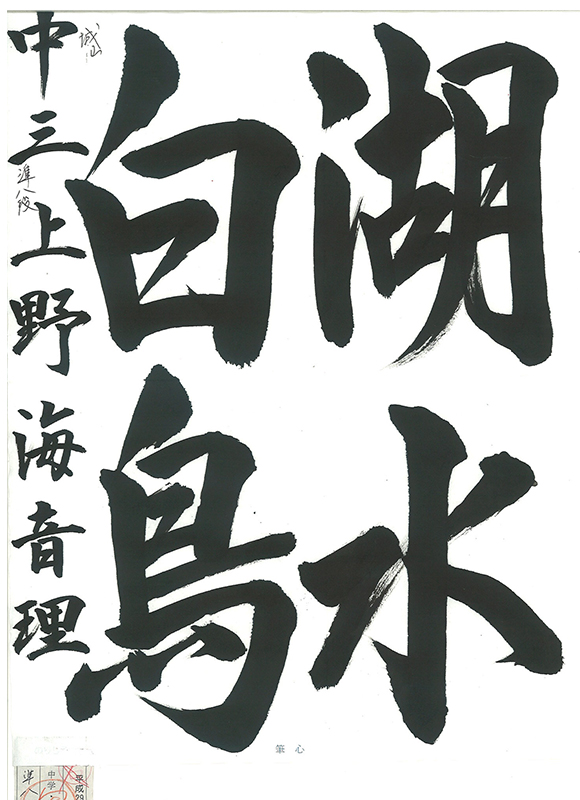 湖水
白鳥
中三上野海音理
城山
準八段
筆心
平成29
中学
準八